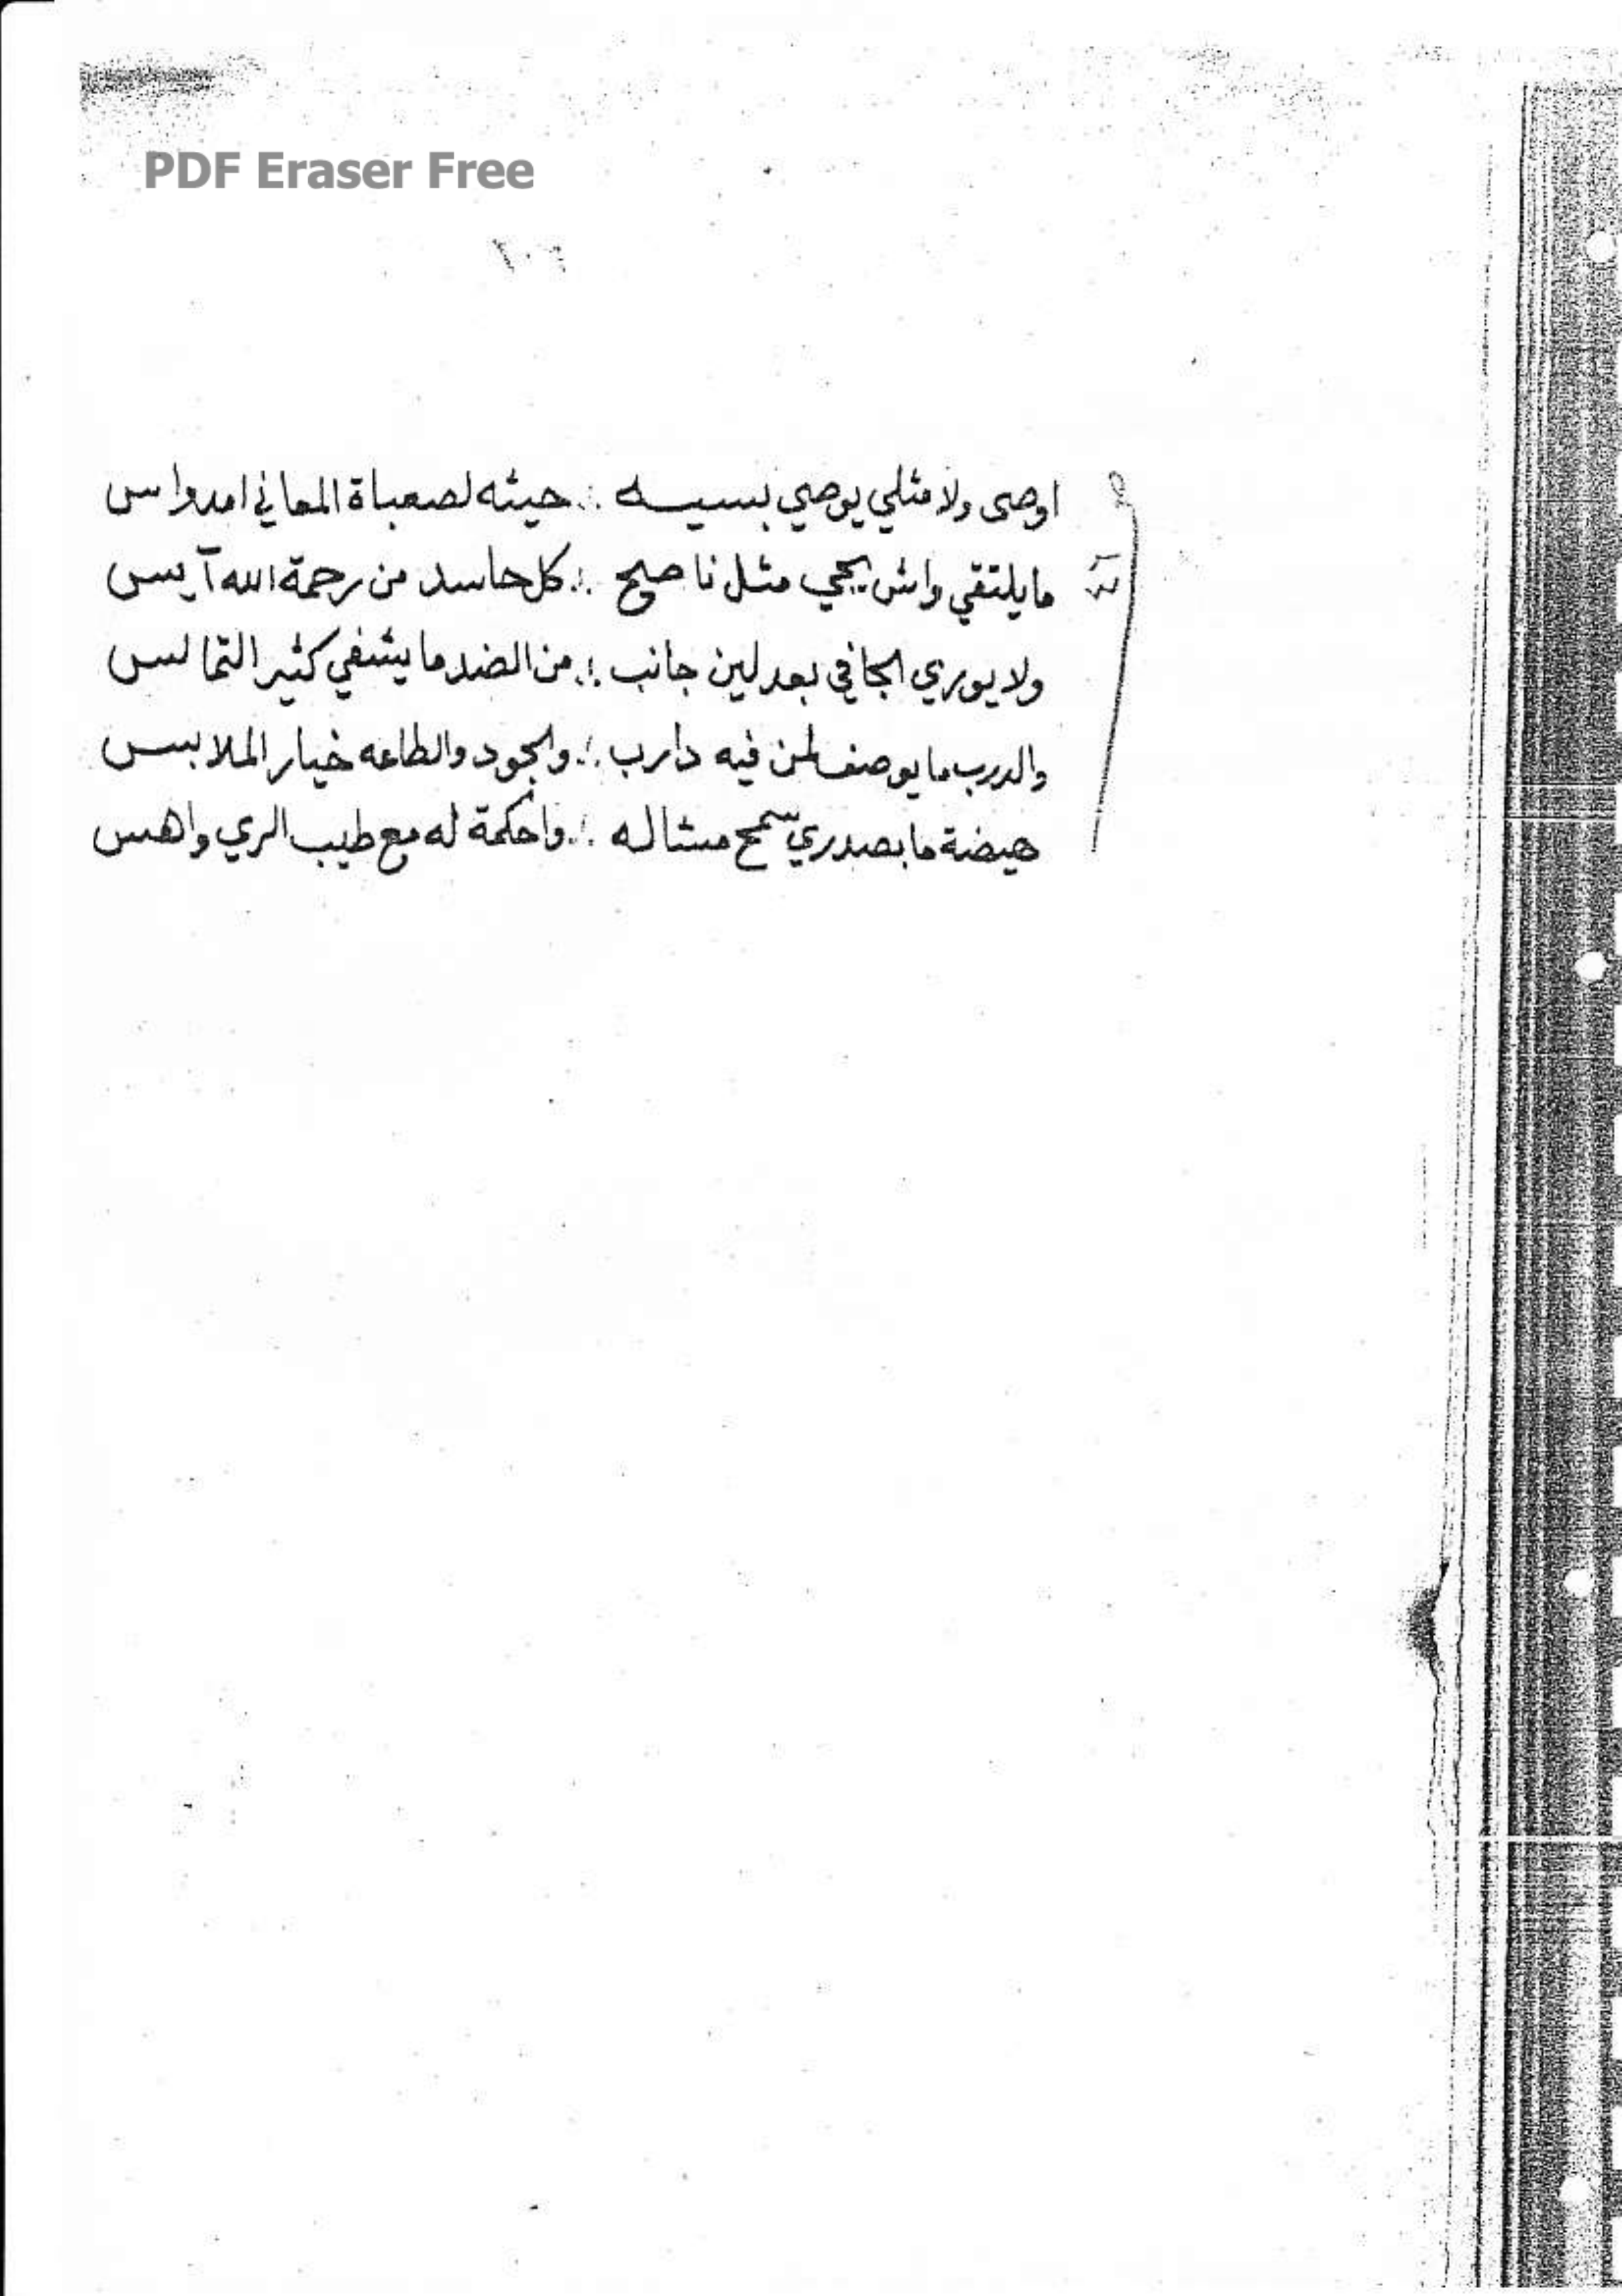 PDF Eraser Free
اوصى ولا مثلي يوصي بسيسه ∴ حيثه لصعباة المعاني امدواس
ما يلتقي واش يجي مثل ناصح ∴ كل حاسد من رحمة الله آيس
ولا يوري الجافي بعد لين جانب ∴ من الضد ما يشفي كثير التمالس
والدرب ما يوصف لمن فيه دارب ∴ والجود والطاعه خيار الملابس
هيضة ما بصدري سمح مثاله ∴ واحكمة له مع طيب الري واهس